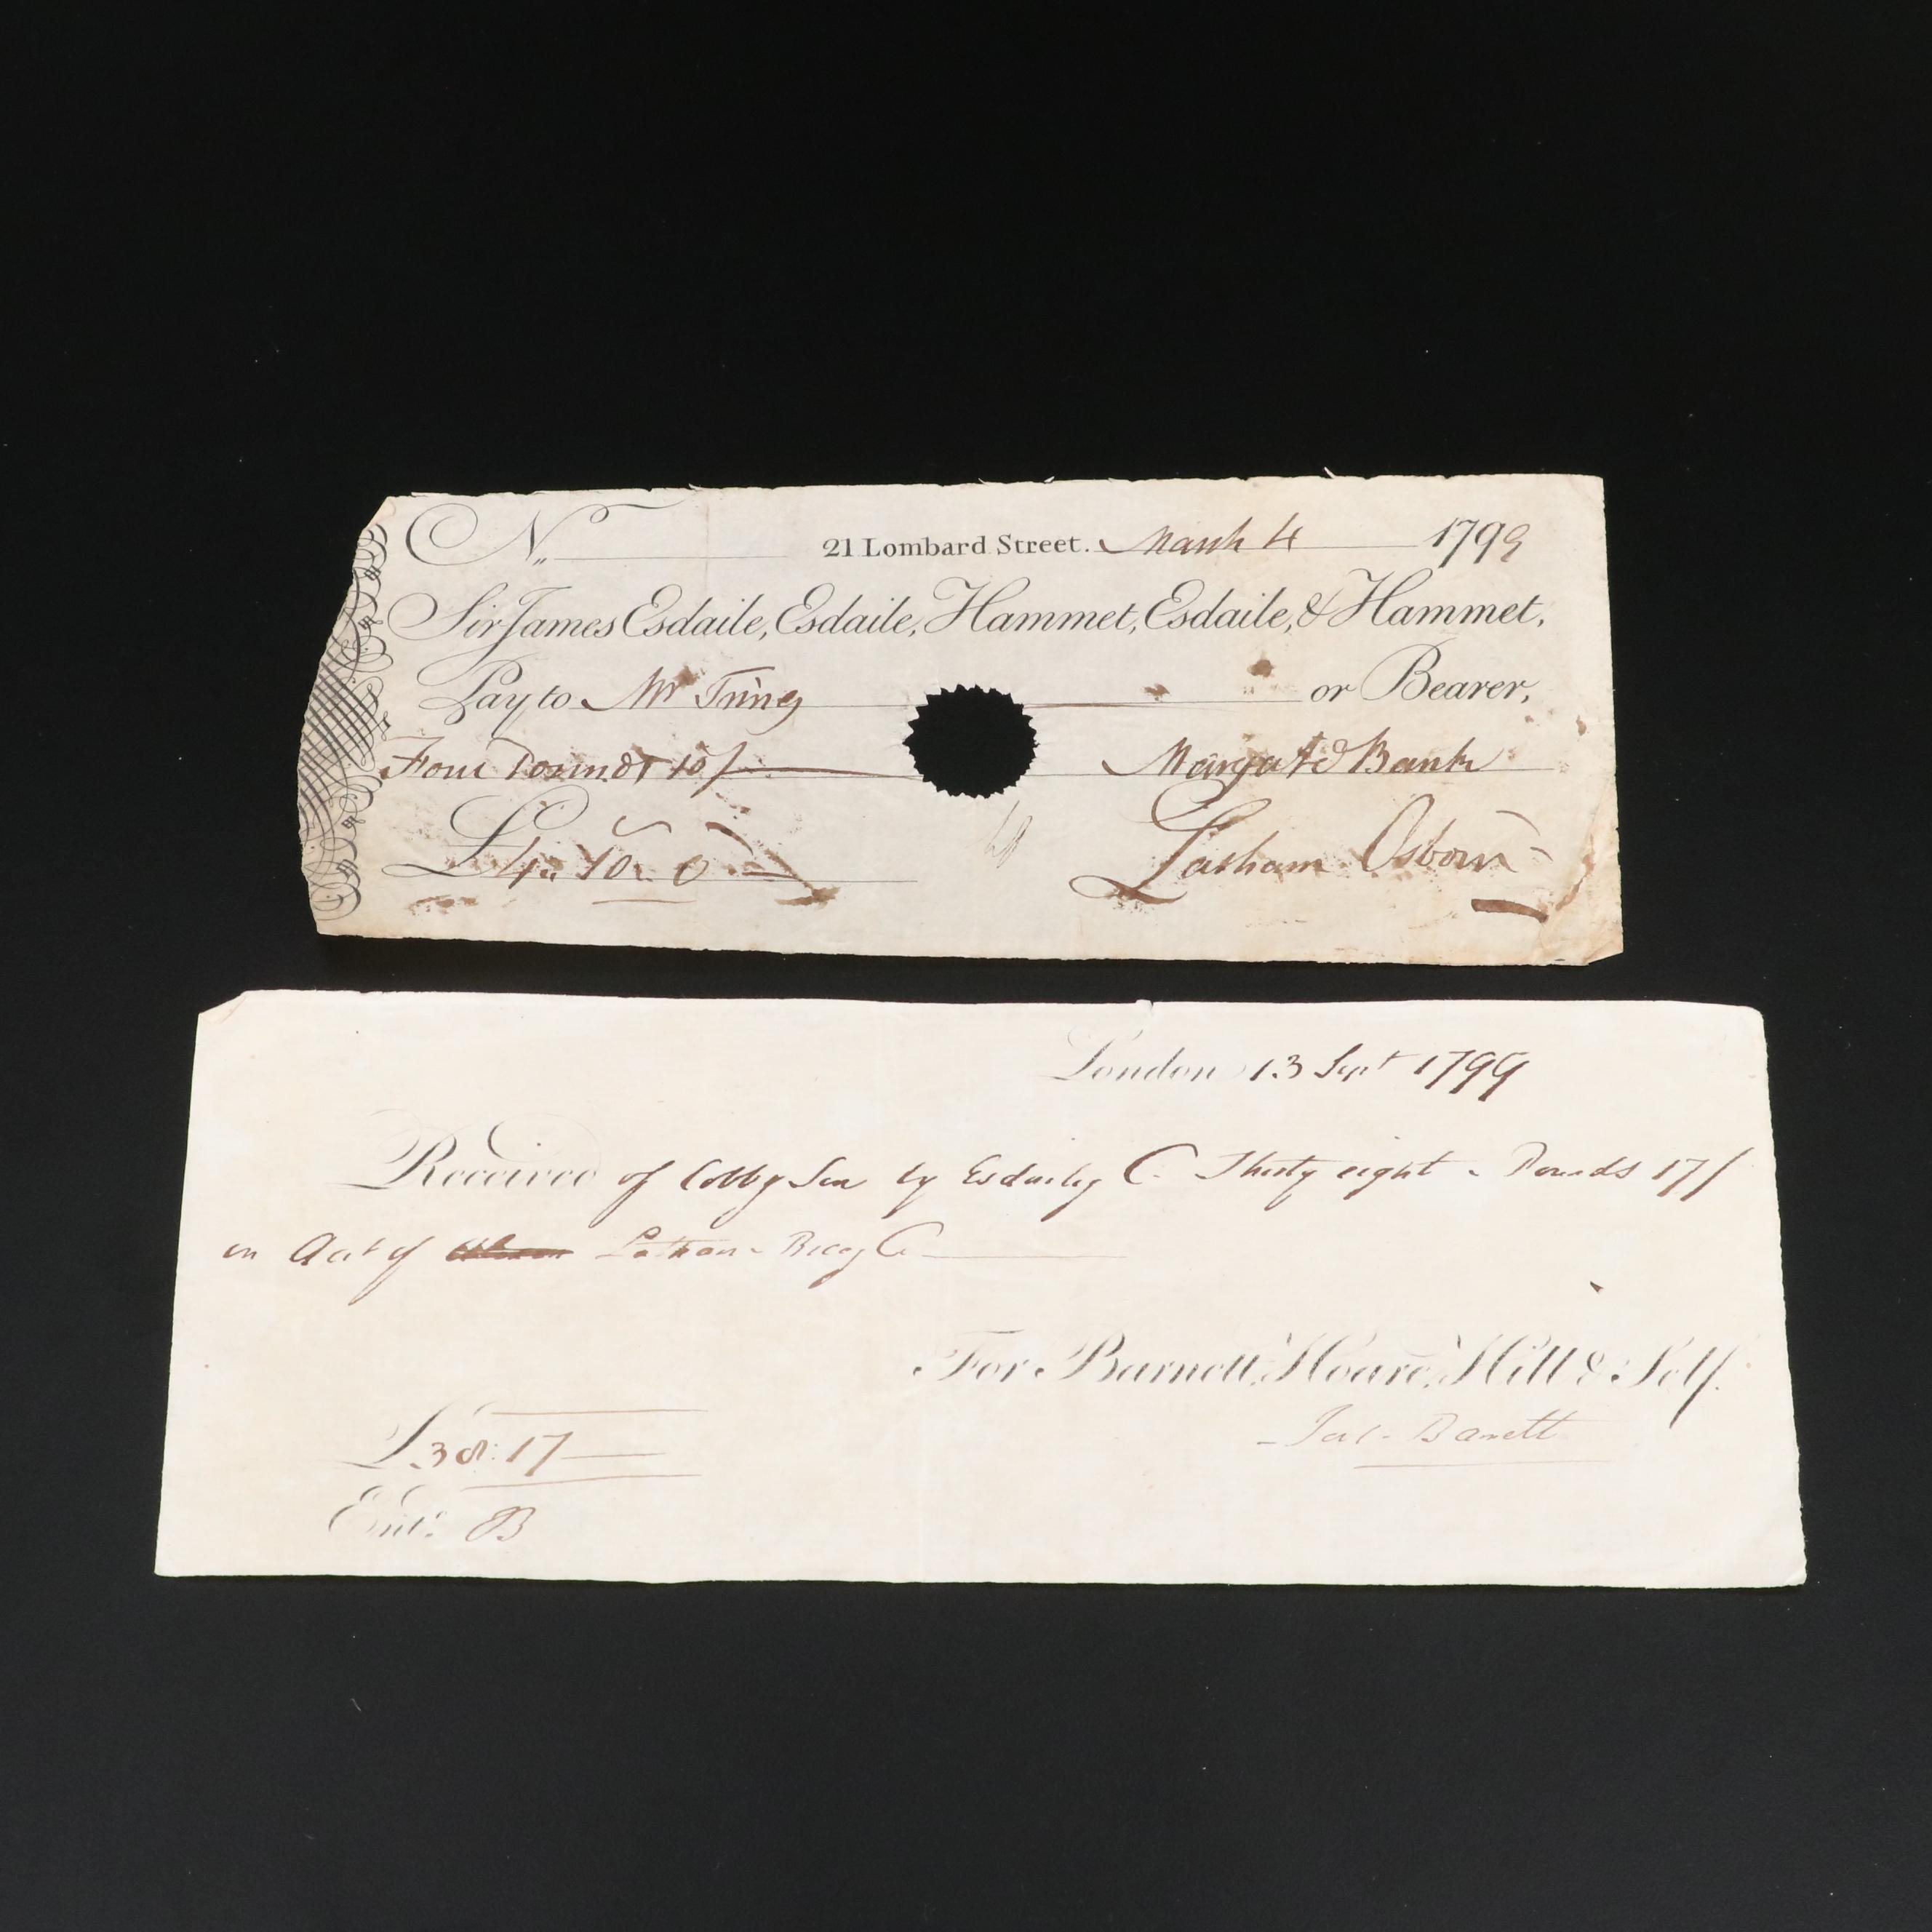 No. 21 Lombard Street. March 4 1799
Sir James Esdaile, Esdaile, Hammet, Esdaile, & Hammet,
Pay to Mr or Bearer,
Four Pounds 10/ Margate Bank
£4 " 10 " 0 Latham Osborn
London 13 Sept 1799
Received of Cobb & Son by Esdaile & C. Thirty eight Pounds 17/
on Acct of Latham Co
For Barnett, Hoare, Hill & Self.
Barnett
£38: 17
Entd. B